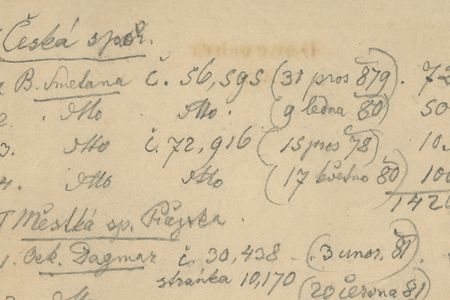 Česká spoř.
B. Smetana č. 56,595 (31 pros 879). 72
2. dtto dtto. (9 ledna 80) 50
3. dtto č. 72,916 (15 pros 78) 10
4. dtto dtto (17 května 80) 100
1420
Městká sp. Pražska.
1. Ock. Dagmar č. 30,438 (3 unor. 81)
stránka 10,170
(20 června 81)